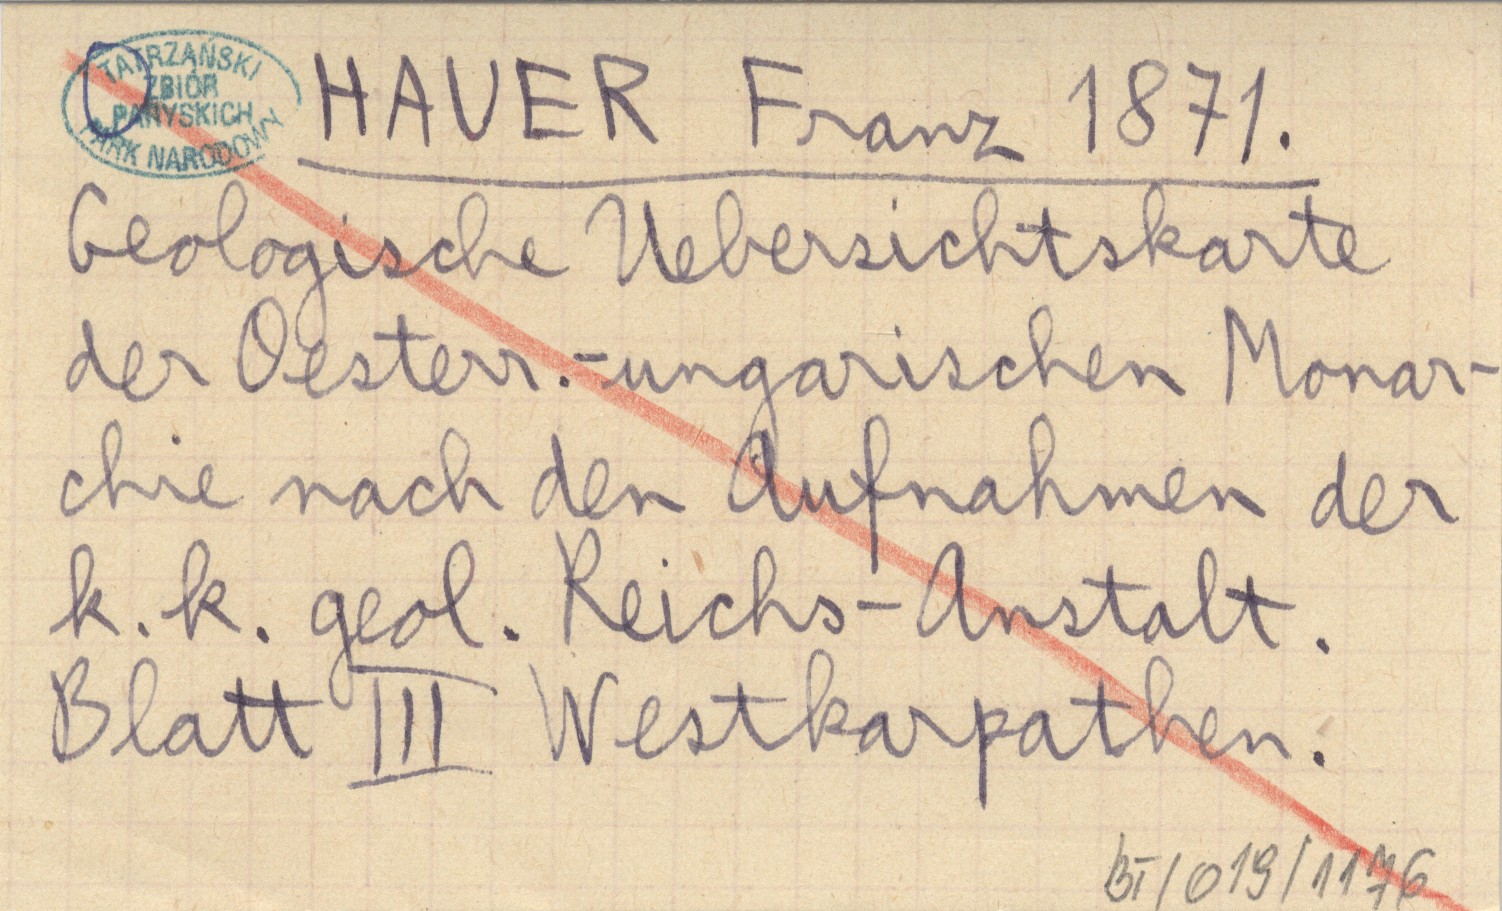 TATRZAŃSKI
ZBIÓR
PARYSKICH
PARK NARODOWY
HAUER Franz 1871.
Geologische Uebersichtskarte
der Oesterr.-ungarischen Monar-
chie nach den Aufnahmen der
k.k. geol. Reichs-Anstalt.
Blatt III Westkarpathen.
BI/019/1176